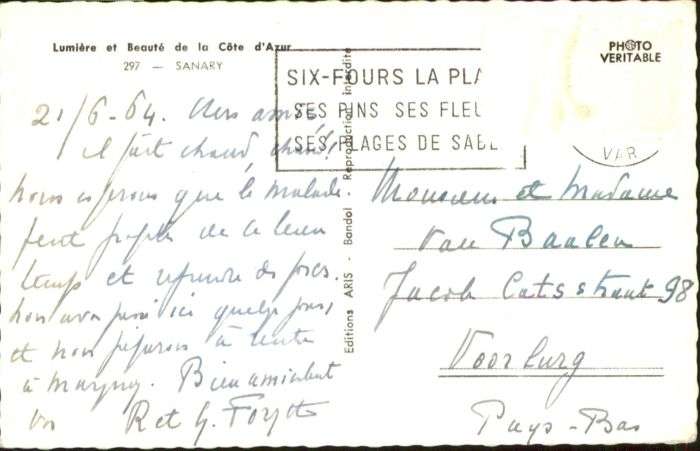 Lumière et Beauté de la Côte d'Azur
297 — SANARY
PHOTO
VERITABLE
SIX-FOURS LA PLA
SES PINS SES FLEU
SES PLAGES DE SABL
VAR
Editions ARIS - Bandol - Reproduction interdite
21/6-64. Chers amis
il fait chaud, chaud!
Nous espérons que le malade
peut profiter de ce beau
temps et reprendre des forces.
nous avons passé ici quelques jours
et nous
à Bien amicalement
R et G.
Monsieur et Madame
Van Baalen
Jacob Catsstraat 98
Voorburg
Pays-Bas